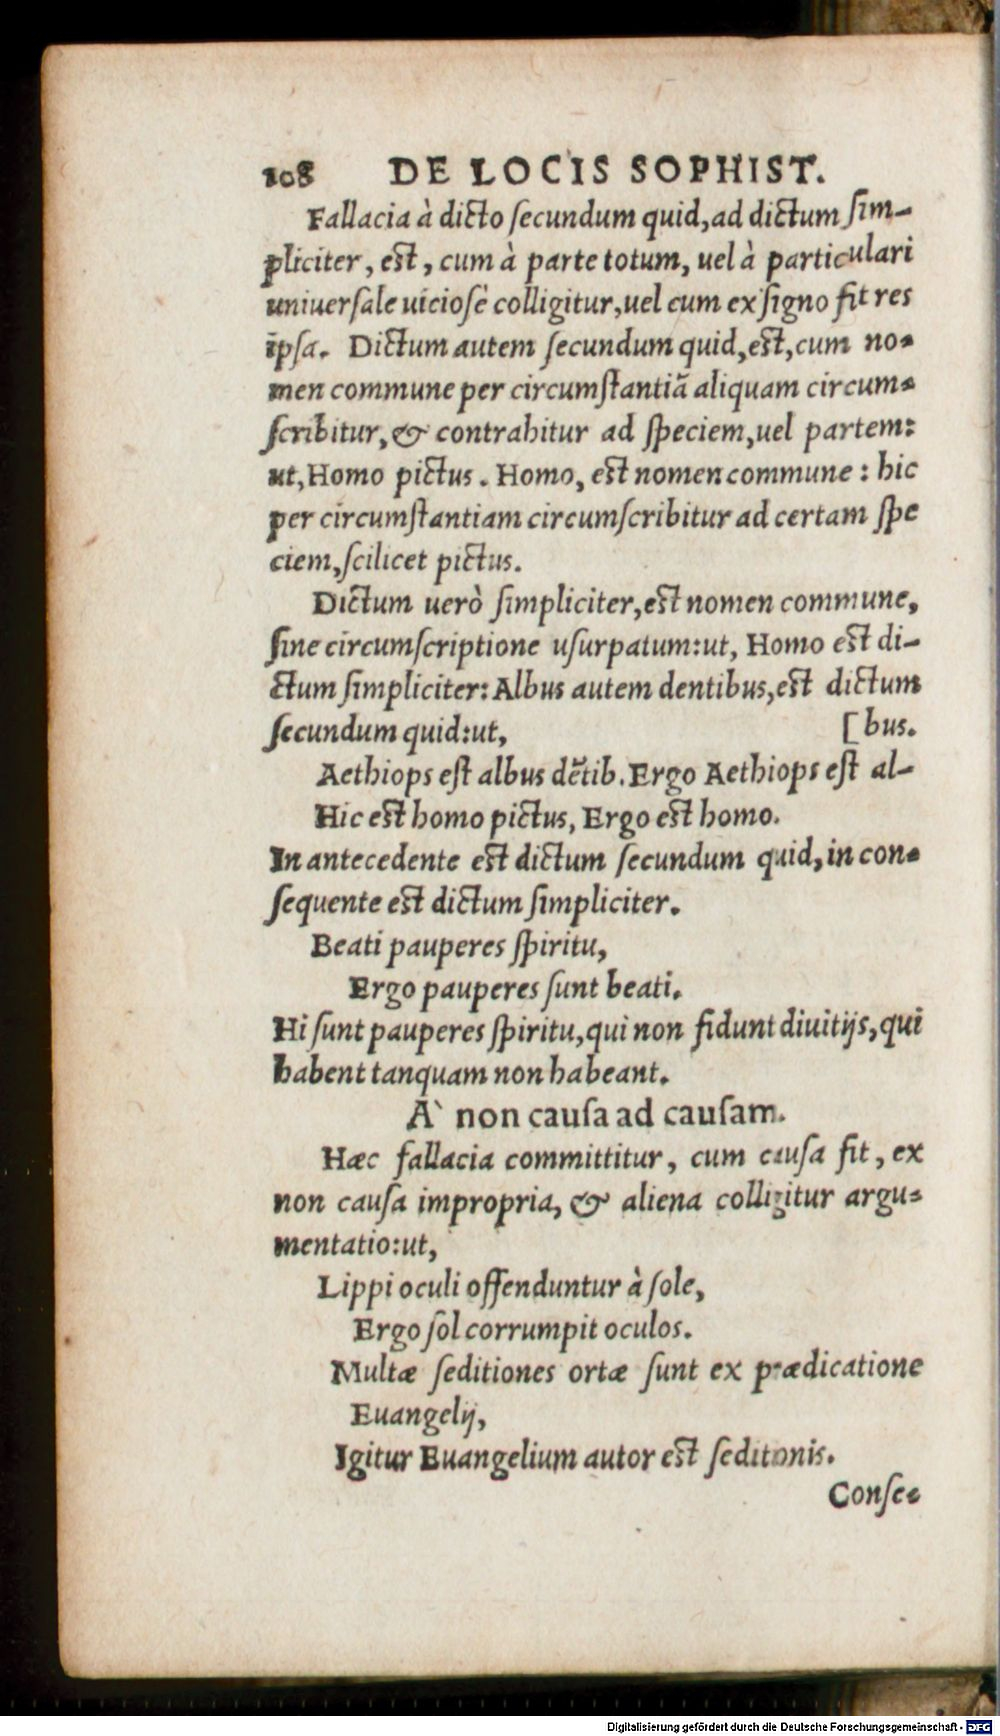 108 DE LOCIS SOPHIST.
Fallacia à dicto ſecundum quid,ad dictum ſim-
pliciter, eſt, cum à parte totum, uel à particulari
uniuerſale uicioſè colligitur,uel cum ex ſigno fit res
ipſa. Dictum autem ſecundum quid,eſt,cum no-
men commune per circumſtantiã aliquam circum-
ſcribitur,& contrahitur ad ſpeciem,uel partem:
ut,Homo pictus. Homo, eſt nomen commune: hic
per circumſtantiam circumſcribitur ad certam ſpe
ciem,ſcilicet pictus.
Dictum uerò ſimpliciter,eſt nomen commune,
ſine circumſcriptione uſurpatum:ut, Homo eſt di-
ctum ſimpliciter: Albus autem dentibus,eſt dictum
ſecundum quid:ut, [bus.
Aethiops eſt albus dẽtib. Ergo Aethiops eſt al-
Hic eſt homo pictus, Ergo eſt homo.
In antecedente eſt dictum ſecundum quid, in con-
ſequente eſt dictum ſimpliciter.
Beati pauperes ſpiritu,
Ergo pauperes ſunt beati.
Hi ſunt pauperes ſpiritu,qui non fidunt diuitijs,qui
habent tanquam non habeant.
A` non cauſa ad cauſam.
Hæc fallacia committitur, cum cauſa fit, ex
non cauſa impropria, & aliena colligitur argu-
mentatio:ut,
Lippi oculi offenduntur à ſole,
Ergo ſol corrumpit oculos.
Multæ ſeditiones ortæ ſunt ex prædicatione
Euangelij,
Igitur Euangelium autor eſt ſeditonis.
Conſe-
Digitalisierung gefördert durch die Deutsche Forschungsgemeinschaft - DFG